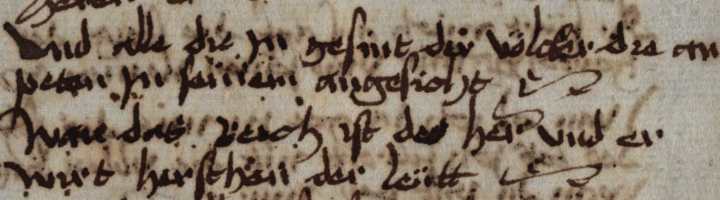 Vnd alle die Jn gesint der völcker die an
peten Jn seinem angesicht
Wan das reich ist des her vnd er
wirt herschen der leütt